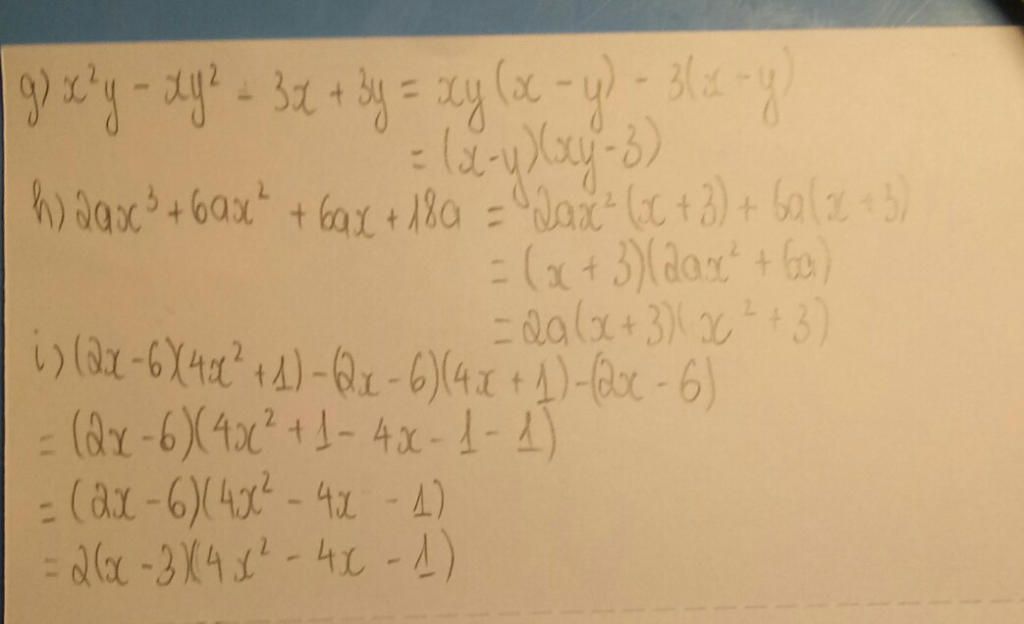 g) x²y - xy² - 3x + 3y = xy(x - y) - 3(x - y)
= (x-y)(xy-3)
h) 2ax³ + 6ax² + 6ax + 18a = 2ax²(x + 3) + 6a(x + 3)
= (x + 3)(2ax² + 6a)
= 2a(x + 3)(x² + 3)
i) (2x - 6)(4x² + 1) - (2x - 6)(4x + 1) - (2x - 6)
= (2x - 6)(4x² + 1 - 4x - 1 - 1)
= (2x - 6)(4x² - 4x - 1)
= 2(x - 3)(4x² - 4x - 1)